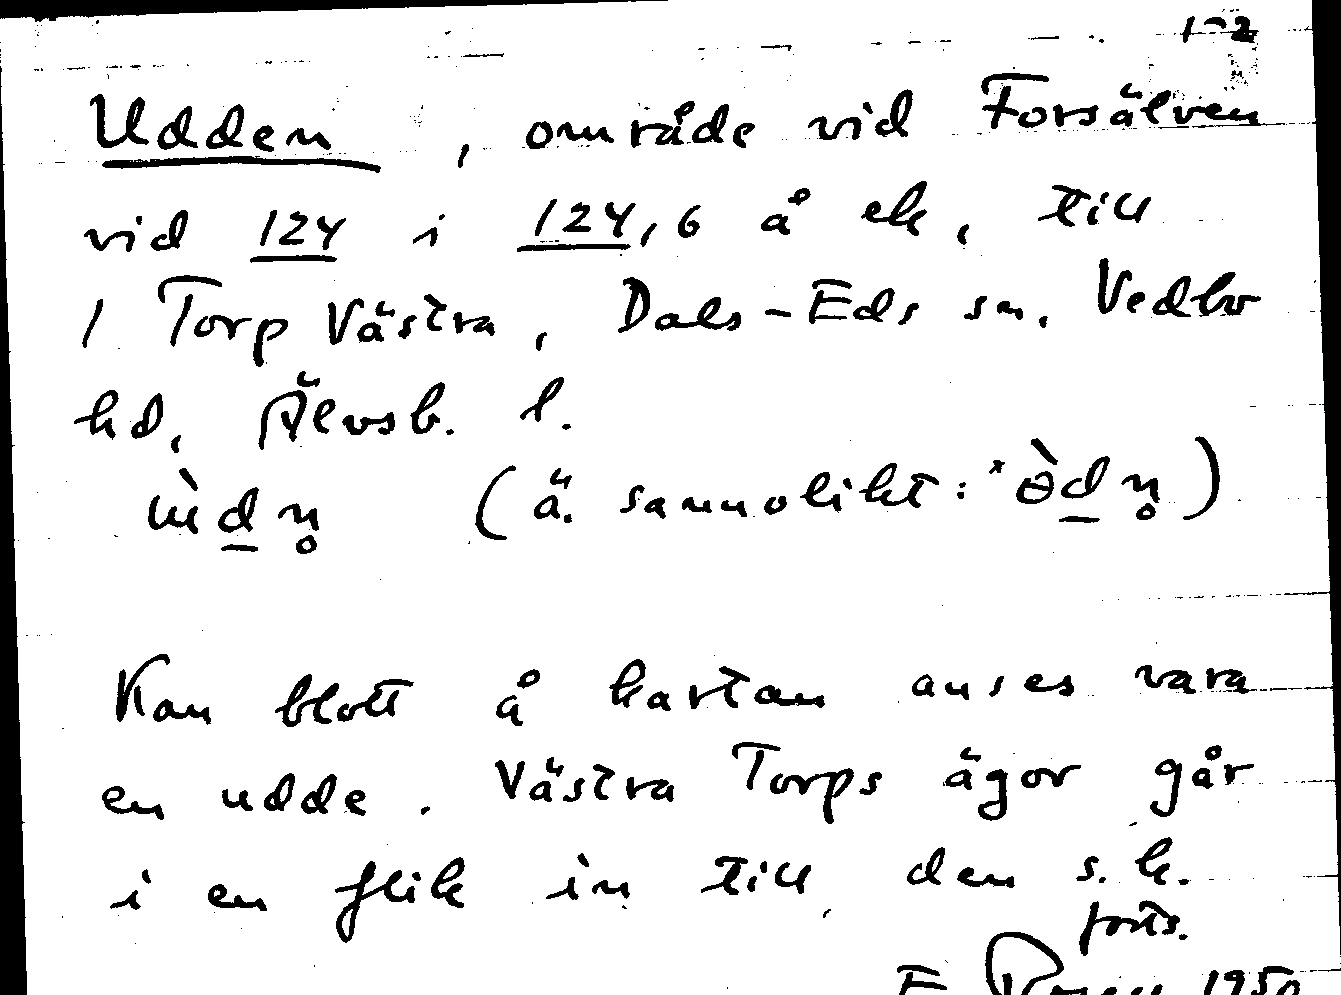 Udden, område vid Forsälven
vid 124 i 124,6 å ek, till
1 Torp Västra, Dals-Eds sn, Vedbo
hd, Älvsb. l.
(ä. sannolikt:
Kan blott å kartan anses vara
en udde. Västra Torps ägor går
i en flik in till den s.k.
forts.
E 1950